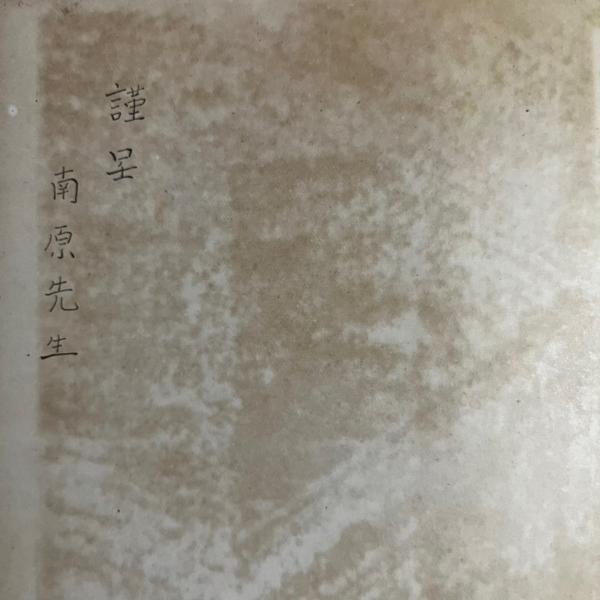 謹呈
南原先生